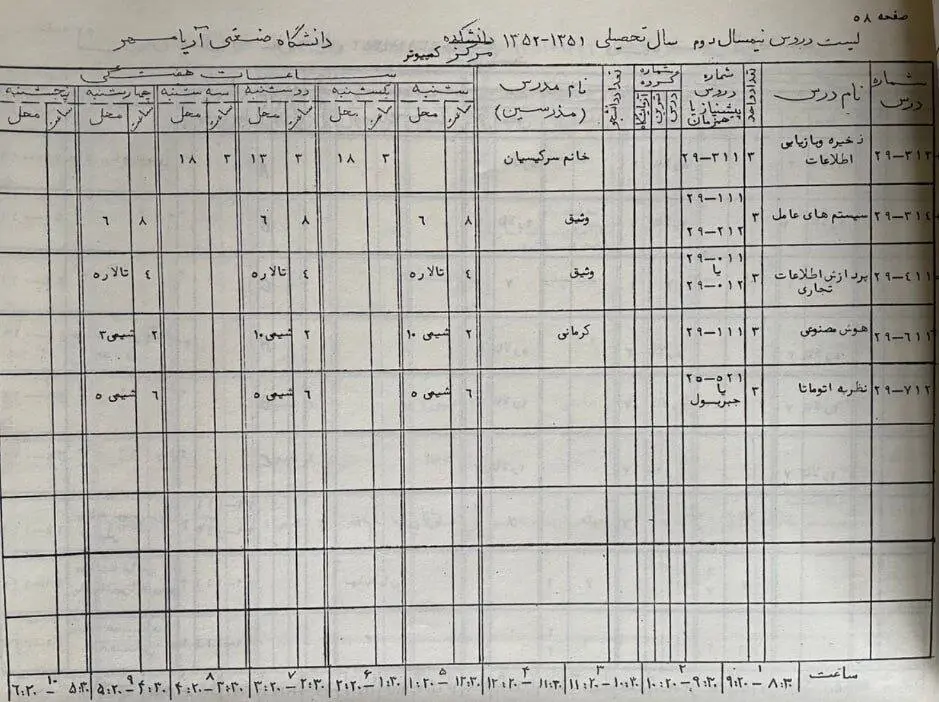 صفحه ۵۸
لیست دروس نیمسال دوم سال تحصیلی ۱۳۵۱-۱۳۵۲ دانشکده مرکز کمپیوتر دانشگاه صنعتی آریامهر
شماره درس نام درس تعداد واحد شماره دروس پیشنیاز یا همزمان شماره گروه درس تمرین آزمایشگاه تعداد دانشجو نام مدرس (مدرسین) ساعات هفتگی
شنبه یکشنبه دوشنبه سه شنبه چهارشنبه پنجشنبه
ساعت محل ساعت محل ساعت محل ساعت محل ساعت محل ساعت محل
۲۹-۳۱۳ ذخیره و بازیابی اطلاعات ۳ ۲۹-۳۱۱ خانم سرکیسیان ۳ ۱۸ ۳ ۱۳ ۳ ۱۸
۲۹-۳۱٤ سیستم های عامل ۳ ۲۹-۱۱۱ ۲۹-۲۱۲ وثیق ۸ ۶ ۸ ۶ ۸ ۶
۲۹-٤۱۱ پردازش اطلاعات تجاری ۳ ۲۹-۰۱۱ یا ۲۹-۰۱۲ وثیق ٤ تالار ۵ ٤ تالار ۵ ٤ تالار ۵
۲۹-۶۱۱ هوش مصنوعی ۳ ۲۹-۱۱۱ کرمانی ۲ شیمی ۱۰ ۲ شیمی ۱۰ ۲ شیمی ۳
۲۹-۷۱۲ نظریه اتوماتا ۳ ۲۵-۵۲۱ یا جبر بول ۶ شیمی ۵ ۶ شیمی ۵ ۶ شیمی ۵
ساعت ۱ ۸:۳۰-۹:۲۰ ۲ ۹:۳۰-۱۰:۲۰ ۳ ۱۰:۳۰-۱۱:۲۰ ۴ ۱۱:۳۰-۱۲:۲۰ ۵ ۱۲:۳۰-۱:۲۰ ۶ ۱:۳۰-۲:۲۰ ۷ ۲:۳۰-۳:۲۰ ۸ ۳:۳۰-۴:۲۰ ۹ ۴:۳۰-۵:۲۰ ۱۰ ۵:۳۰-۶:۲۰